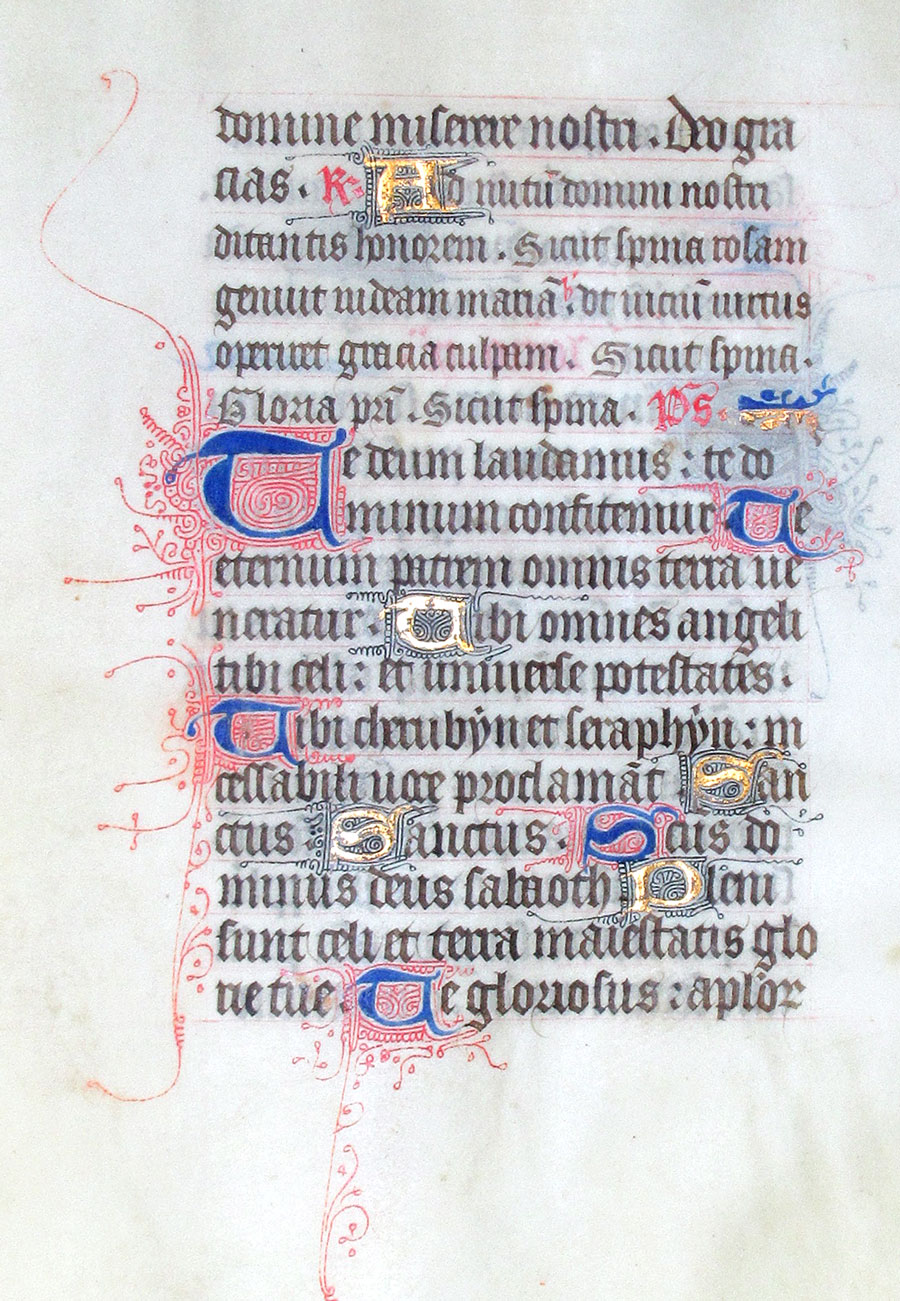 domine miserere nostri. Deo gra
cias. R Ad nutū domini nostri
ditantis honorem. Sicut spina rosam
genuit iudeam mariā. v Vt viciū virtus
operiret gracia culpam. Sicut spina.
Gloria pri. Sicut spina. Ps.
Te deum laudamus: te do
minum confitemur Te
eternum patrem omnis terra ve
neratur. Tibi omnes angeli
tibi celi: et universe potestates:
Tibi cherubyn et seraphyn: in
cessabili voce proclamāt San
ctus Sanctus. Scūs do
minus deus sabaoth Pleni
sunt celi et terra maiestatis glo
rie tue. Te gloriosus: aplor